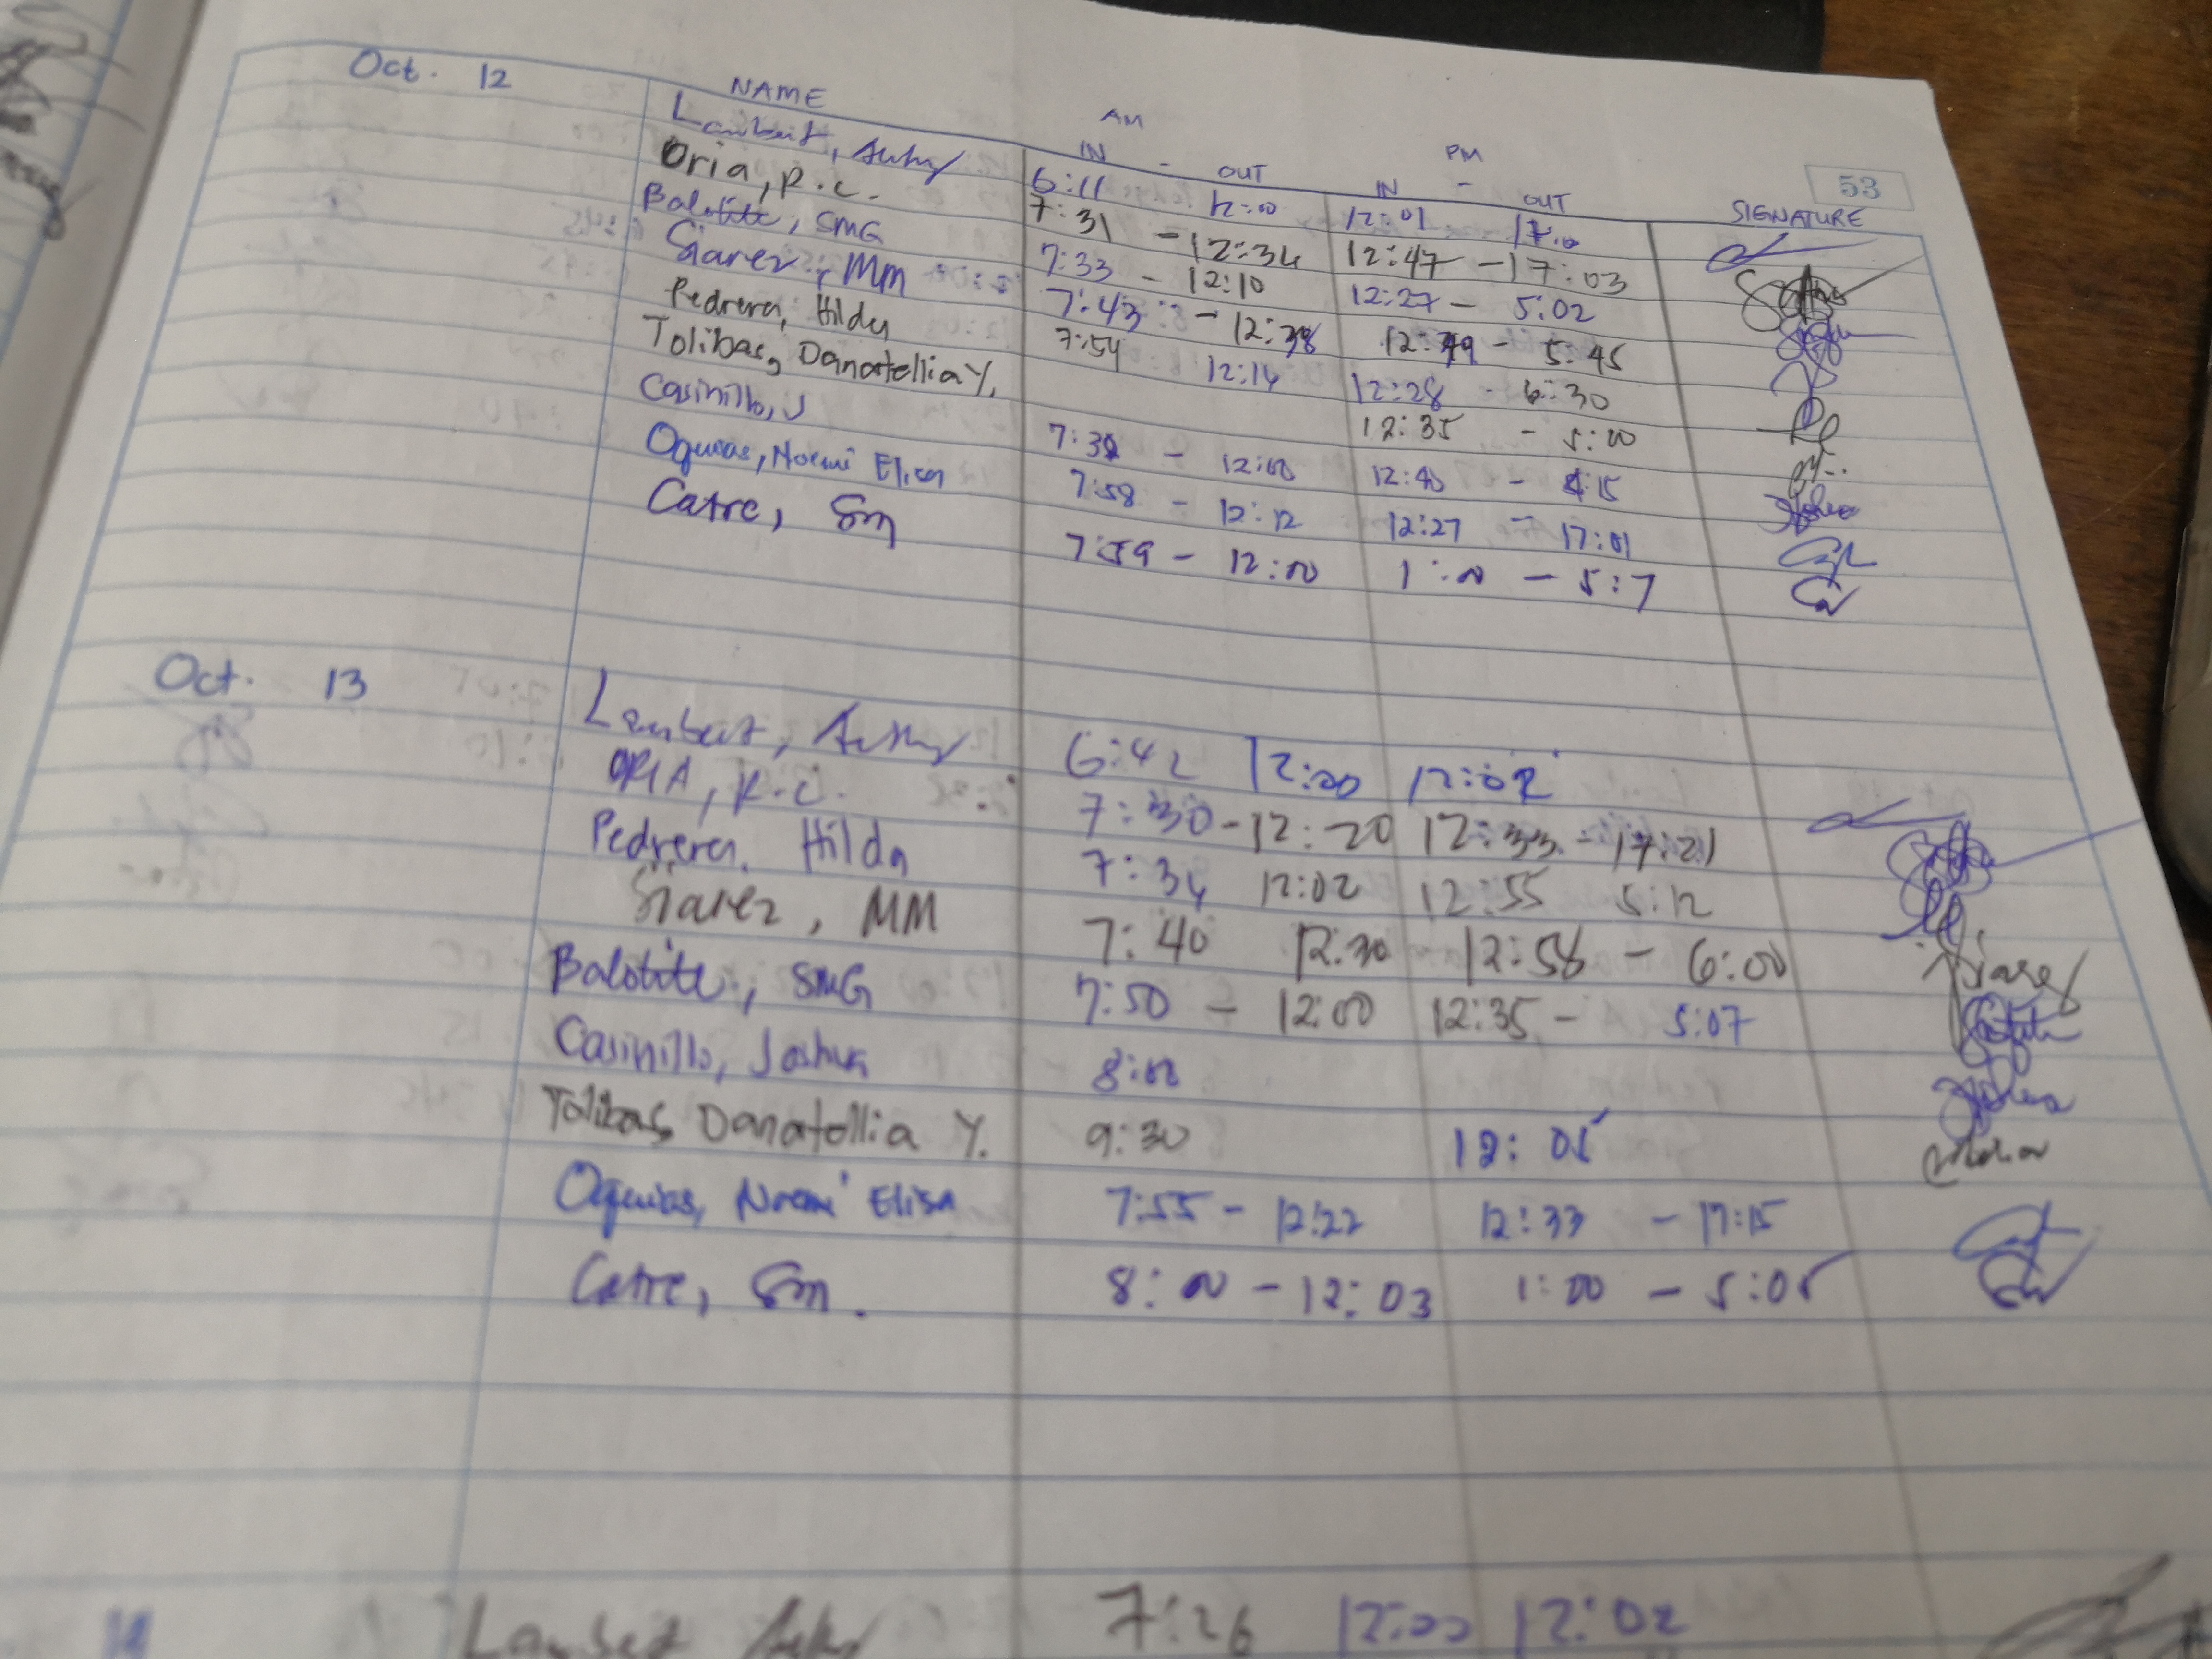 53
Oct. 12 NAME AM IN - OUT PM IN - OUT SIGNATURE
Lambert, 6:11 12:00 12:01
Oria, R.C. 7:31 - 12:34 12:47 - 17:03
Balotite, SMG 7:33 - 12:10 12:27 - 5:02
Siarez, MM 7:43 - 12:38 12:49 - 5:45
Pedrera, Hilda 7:54 12:14 12:28 - 6:30
Tolibas, Danatellia Y. 12:35 - 5:00
Casinillo, J 7:38 - 12:00 12:40 - 15
Oquias, Noemi Elisa 7:58 - 12:12 12:27 - 17:01
Catre, Sm 7:59 - 12:00 1:00 - 5:7
Oct. 13 Lambert, 6:42 12:00 12:02
ORIA, R.C. 7:30 - 12:20 12:33 - 17:21
Pedrera. Hilda 7:34 12:02 12:55 5:12
Siarez, MM 7:40 12:30 12:58 - 6:00
Balotite, SMG 7:50 - 12:00 12:35 - 5:07
Casinillo, Joshua 8:00
Tolibas, Danatellia Y. 9:30 12:05
Oquias, Noemi Elisa 7:55 - 12:22 12:33 - 17:15
Catre, Sm. 8:00 - 12:03 1:00 - 5:05
14 Lambert 7:26 12:00 12:02